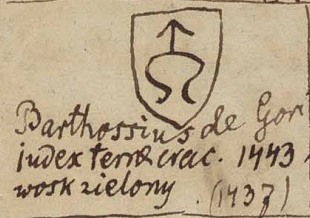 Barthossius de Gor
iudex terræ crac. 1443
wosk zielony (1437)